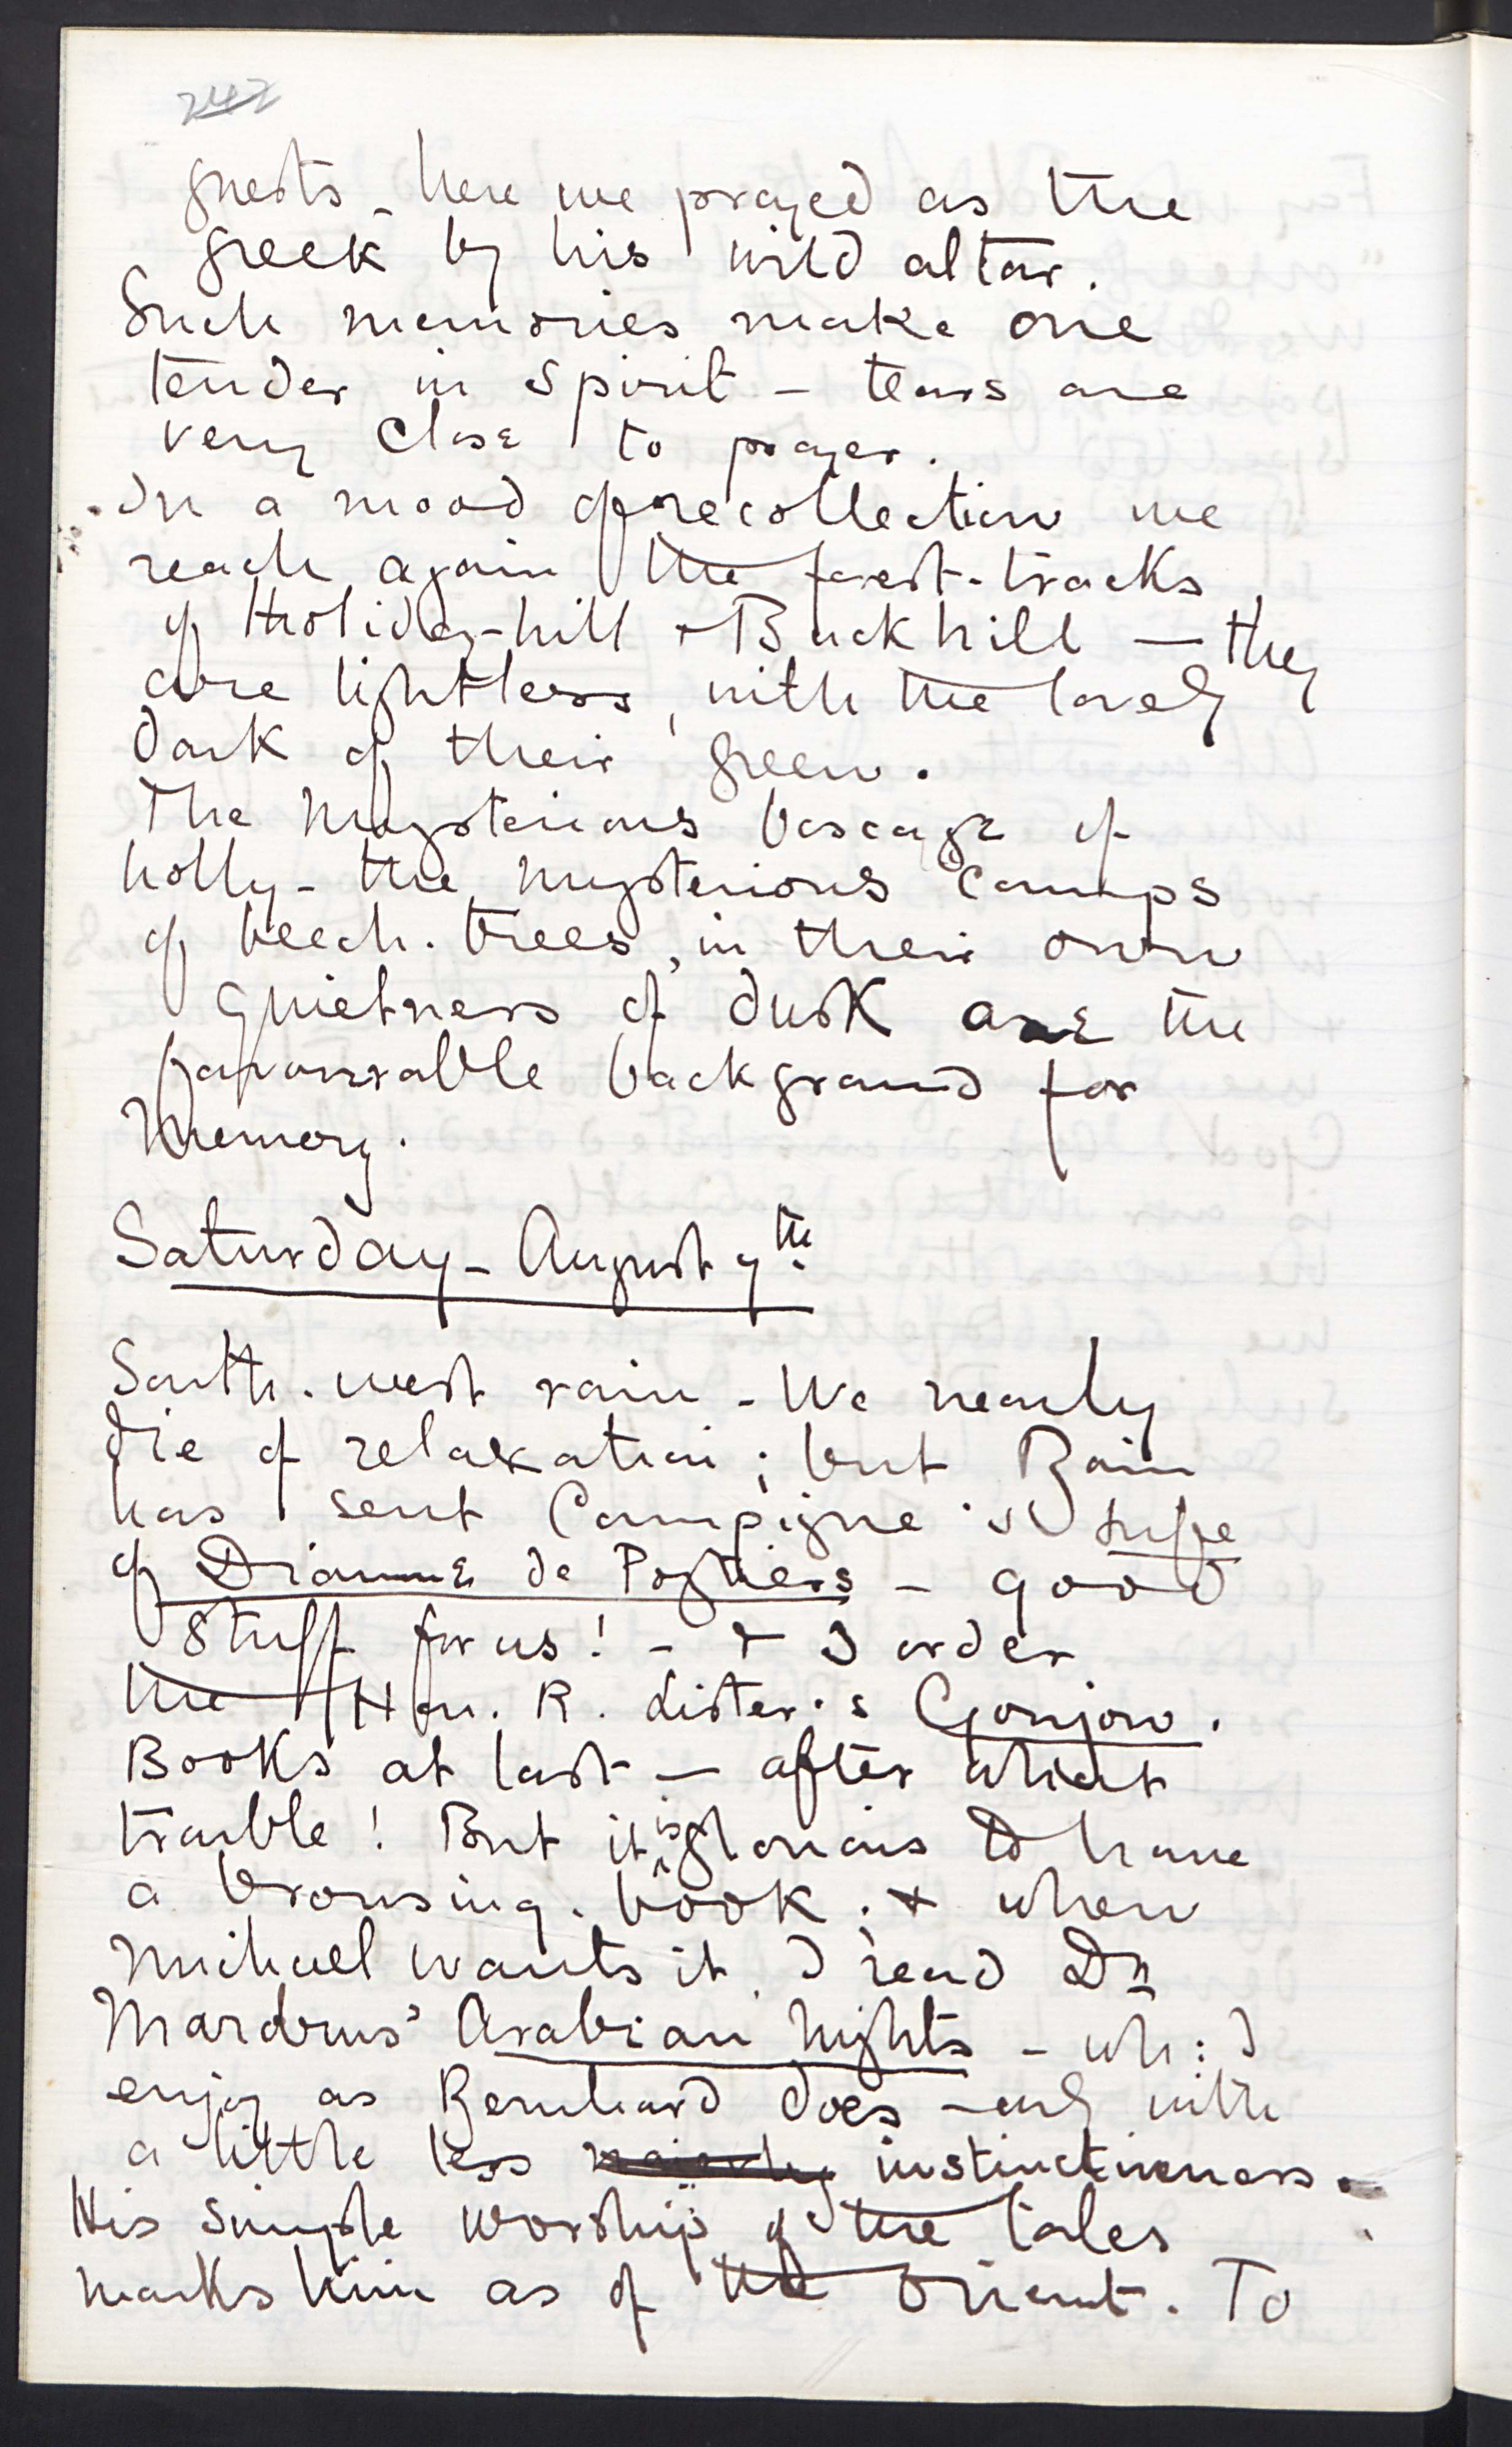 242
guests - here we prayed as the
greek by his wild altar.
Such memories make one
tender in spirit - tears are
very close to prayer.
In a mood of recollection we
reach again the forest-tracks
of Holiday-hill & Buckhill — they
are lightless, with the lovely
dark of their green.
The mysterious boscage of
holly - the mysterious camps
of beech-trees, in their own
quietness of dusk are the
favourable background for
Memory.
Saturday - August 9th.
South-west rain - We nearly
die of relaxation; but Bain
has sent Campigne's Life
of Dianne de Poytiers - good
stuff for us! - & I order
the Hon. R. Lister's Gonjon.
Books at last — after what
trouble! But it is glorious to have
a browsing-book; & when
Michael wants it I read Dr
Mardrus' Arabian Nights - wh: I
enjoy as Bernhard does - only with
a little less instinctiveness.
His simple worship of the tales
marks him as of the Orient. To